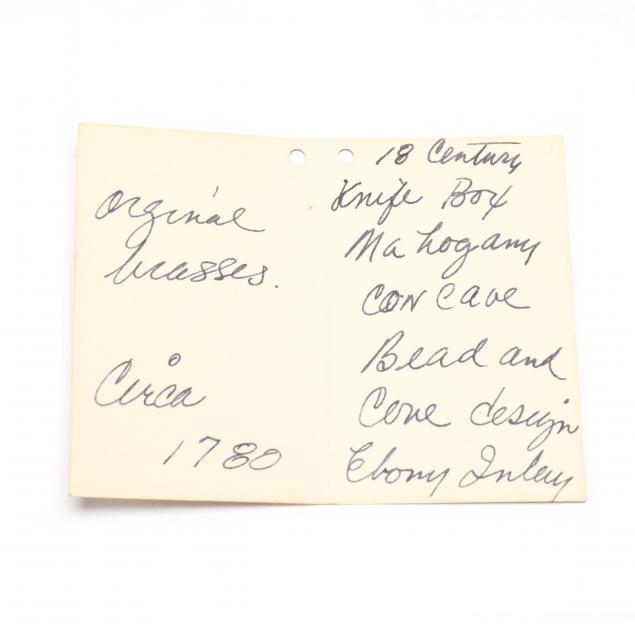 orginal
brasses.
Circa
1780
18 Century
Knife Box
Mahogany
CONCave
Bead and
Cove design
Ebony Inlay